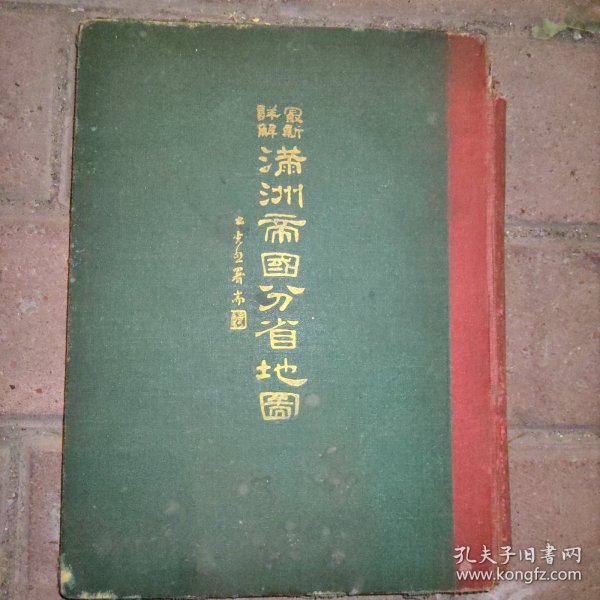 最新
詳解
滿洲帝國分省地圖
孔夫子旧书网
www.kongfz.com